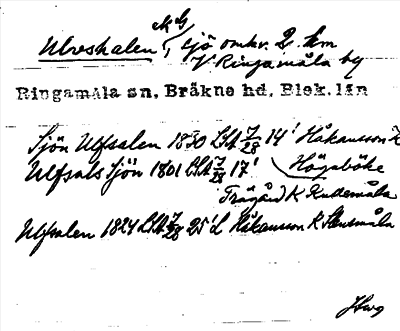 Ulvshalen, sjö omkr. 2 km
V Ringamåla by
Ringamåla sn, Bräkne hd, Blek. län
Sjön Ulfsalen 1830 LSA 7/28 14' Håkansson K
Ulfsals Sjön 1801 LSA 7/28 17' Högaböke
Trägård K Rudemåla
Ulfsalen 1824 LSA 7/28 25'L Håkansson K Stensmåla